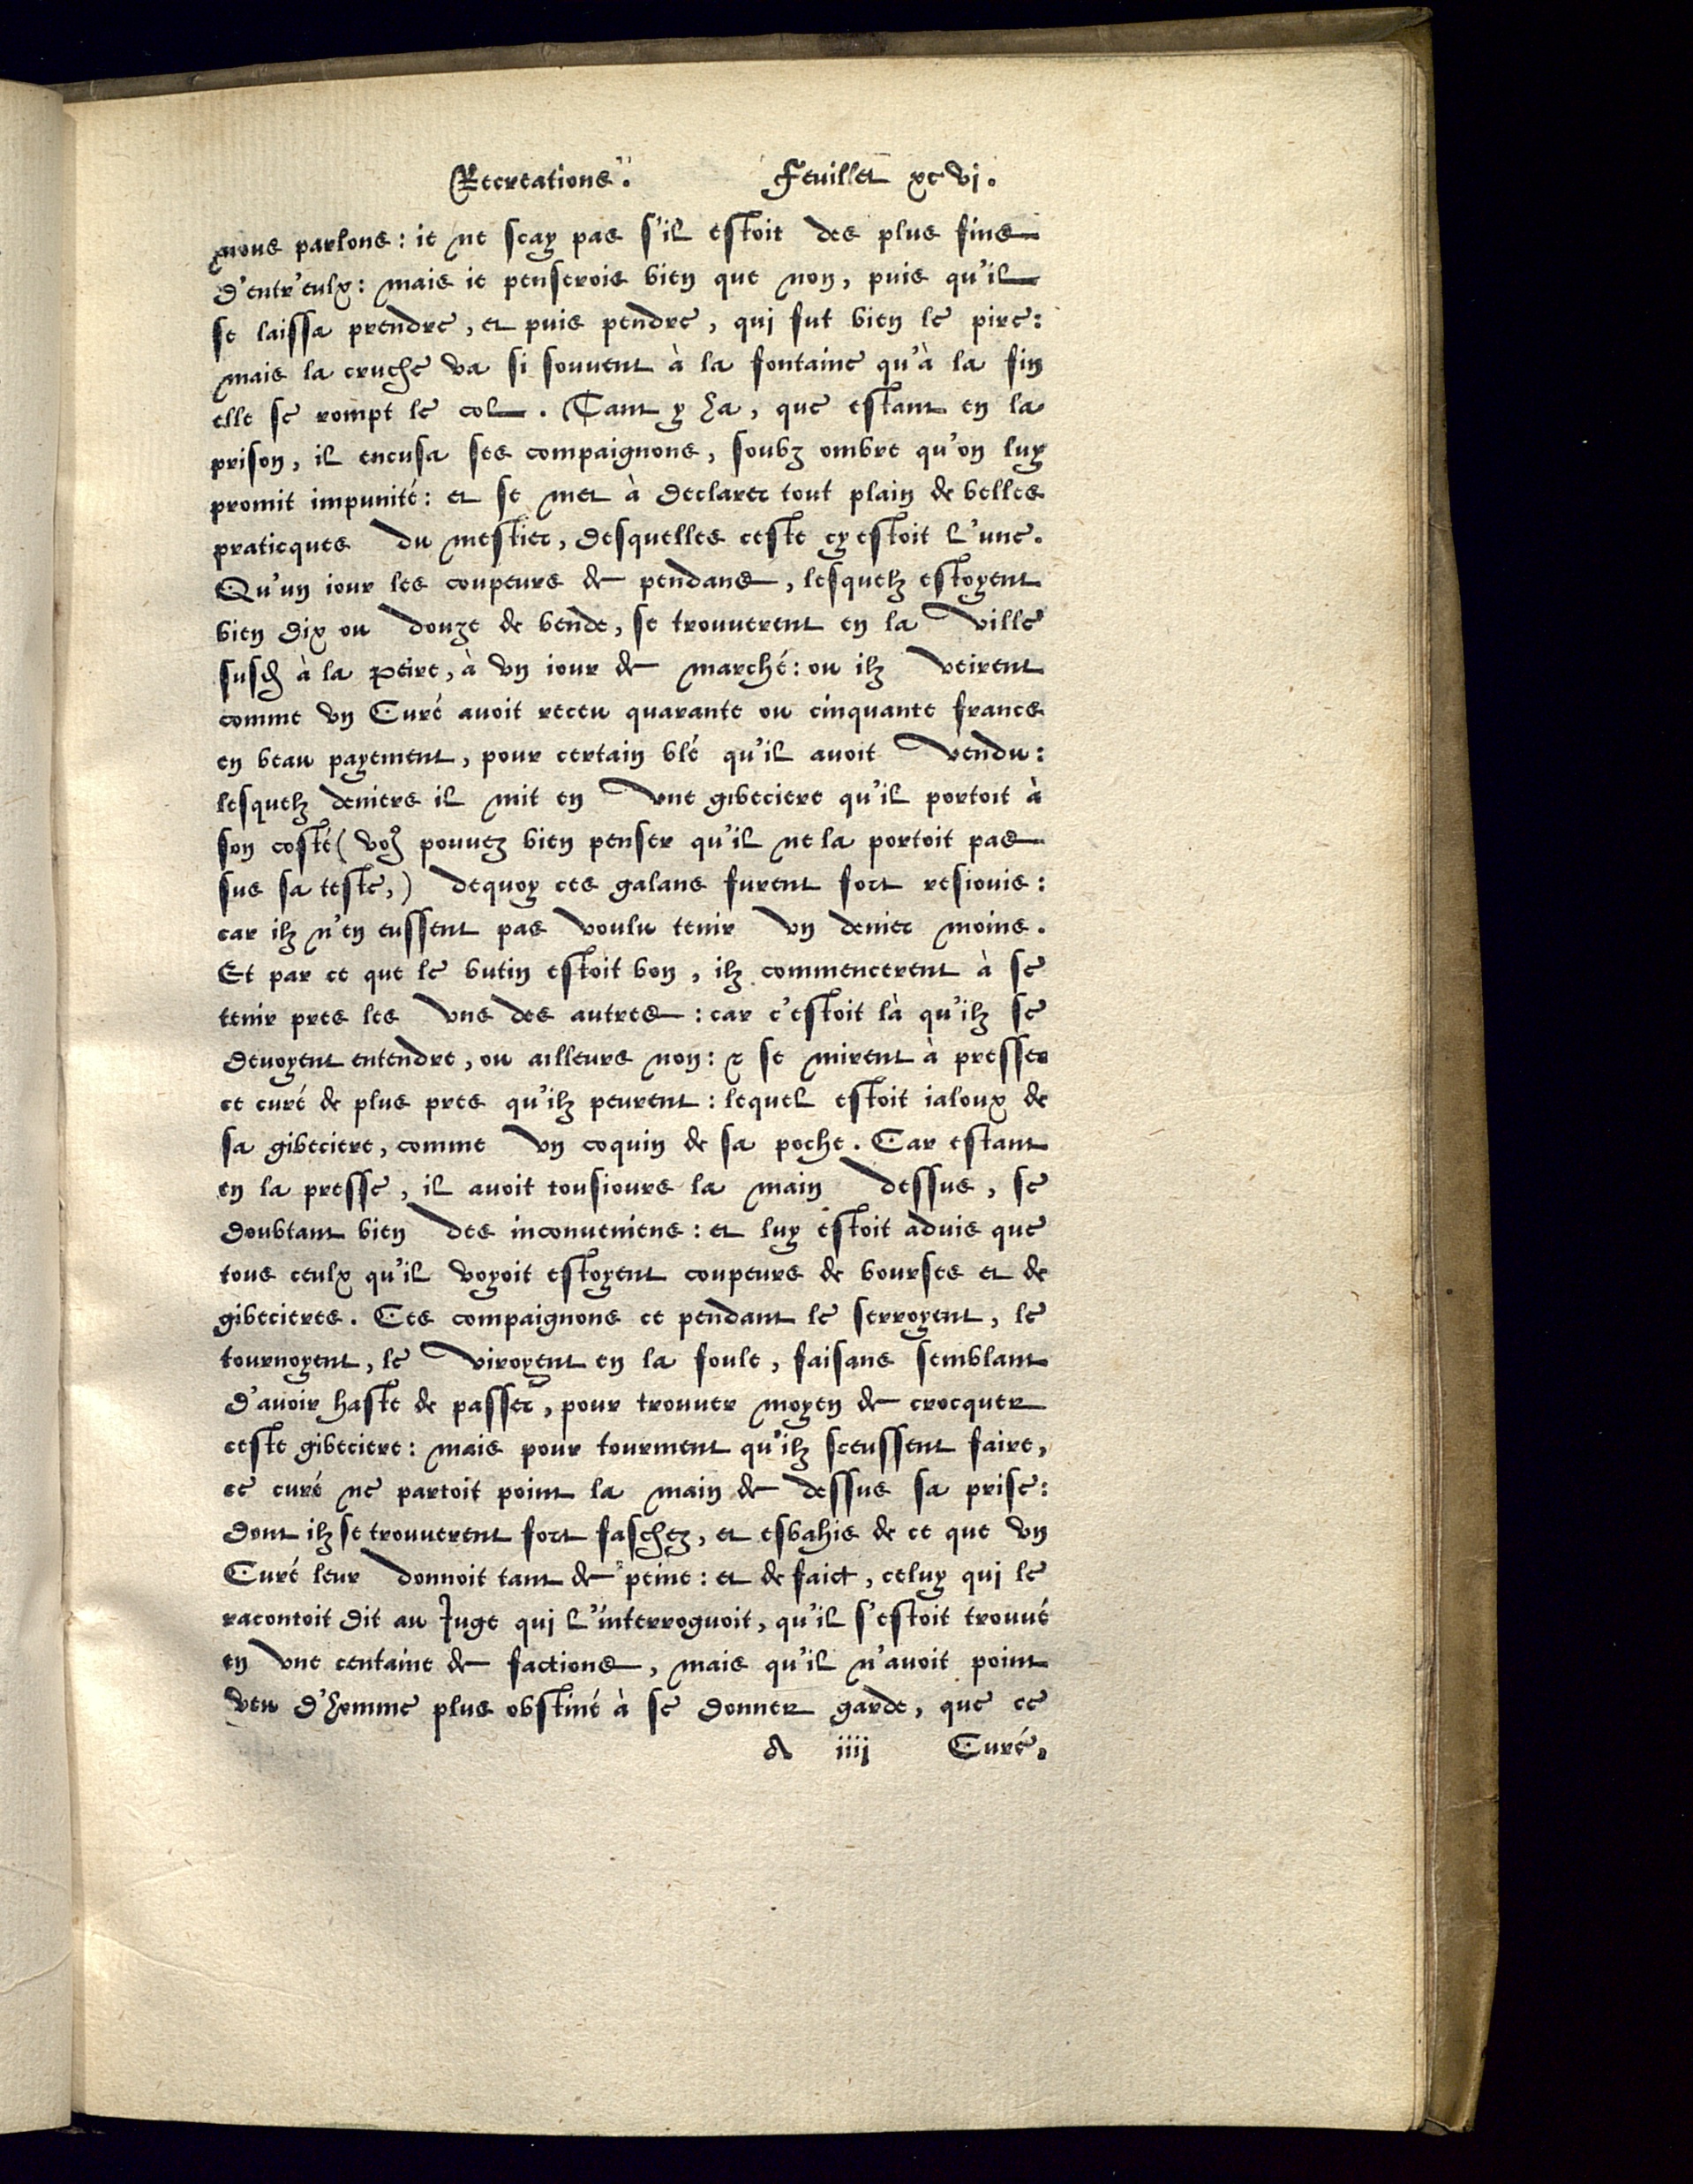 Recreations. Feuillet xcvj.
nous parlons: ie ne scay pas s'il estoit des plus fins
d'entr'eulx: mais ie penserois bien que non, puis qu'il
se laissa prendre, et puis pendre, qui fut bien le pire:
mais la cruche va si souuent à la fontaine qu'à la fin
elle se rompt le col. Tant y ha, que estant en la
prison, il encusa ses compaignons, soubz ombre qu'on luy
promit impunité: et se met à declarer tout plain de belles
praticques du mestier, desquelles ceste cy estoit l'une.
Qu'un iour les coupeurs de pendans, lesquelz estoyent
bien dix ou douze de bende, se trouuerent en la ville
susd à la peire, à vn iour de marché: ou ilz veirent
comme vn Curé auoit receu quarante ou cinquante francs
en beau payement, pour certain blé qu'il auoit vendu:
lesquelz deniers il mit en vne gibeciere qu'il portoit à
son costé (vo9 pouuez bien penser qu'il ne la portoit pas
sus sa teste,) dequoy ces galans furent fort resiouis:
car ilz n'en eussent pas voulu tenir vn denier moins.
Et par ce que le butin estoit bon, ilz commencerent à se
tenir pres les vns des autres: car c'estoit là qu'ilz se
deuoyent entendre, ou ailleurs non: & se mirent à presser
ce curé de plus pres qu'ilz peurent: lequel estoit ialoux de
sa gibeciere, comme vn coquin de sa poche. Car estant
en la presse, il auoit tousiours la main dessus, se
doubtant bien des inconueniens: et luy estoit aduis que
tous ceulx qu'il voyoit estoyent coupeurs de bourses et de
gibecieres. Ces compaignons ce pendant le serroyent, le
tournoyent, le viroyent en la foule, faisans semblant
d'auoir haste de passer, pour trouuer moyen de crocquer
ceste gibeciere: mais pour tourment qu'ilz sceussent faire,
ce curé ne partoit point la main de dessus sa prise:
dont ilz se trouuerent fort faschez, et esbahis de ce que vn
Curé leur donnoit tant de peine: et de faict, celuy qui le
racontoit dit au Juge qui l'interroguoit, qu'il s'estoit trouué
en vne centaine de factions, mais qu'il n'auoit point
veu d'homme plus obstiné à se donner garde, que ce
A iiij Curé.